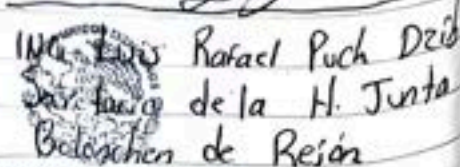 ING. Luis Rafael Puch Dzib
de la H. Junta
Bolonchen de Rejón